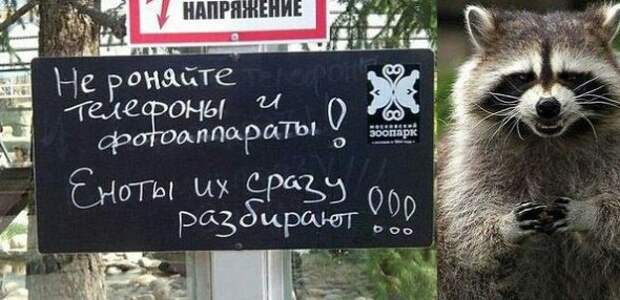 НАПРЯЖЕНИЕ
Не роняйте
телефоны и
фотоаппараты!
МОСКОВСКИЙ
ЗООПАРК
Еноты их сразу
разбирают!!!